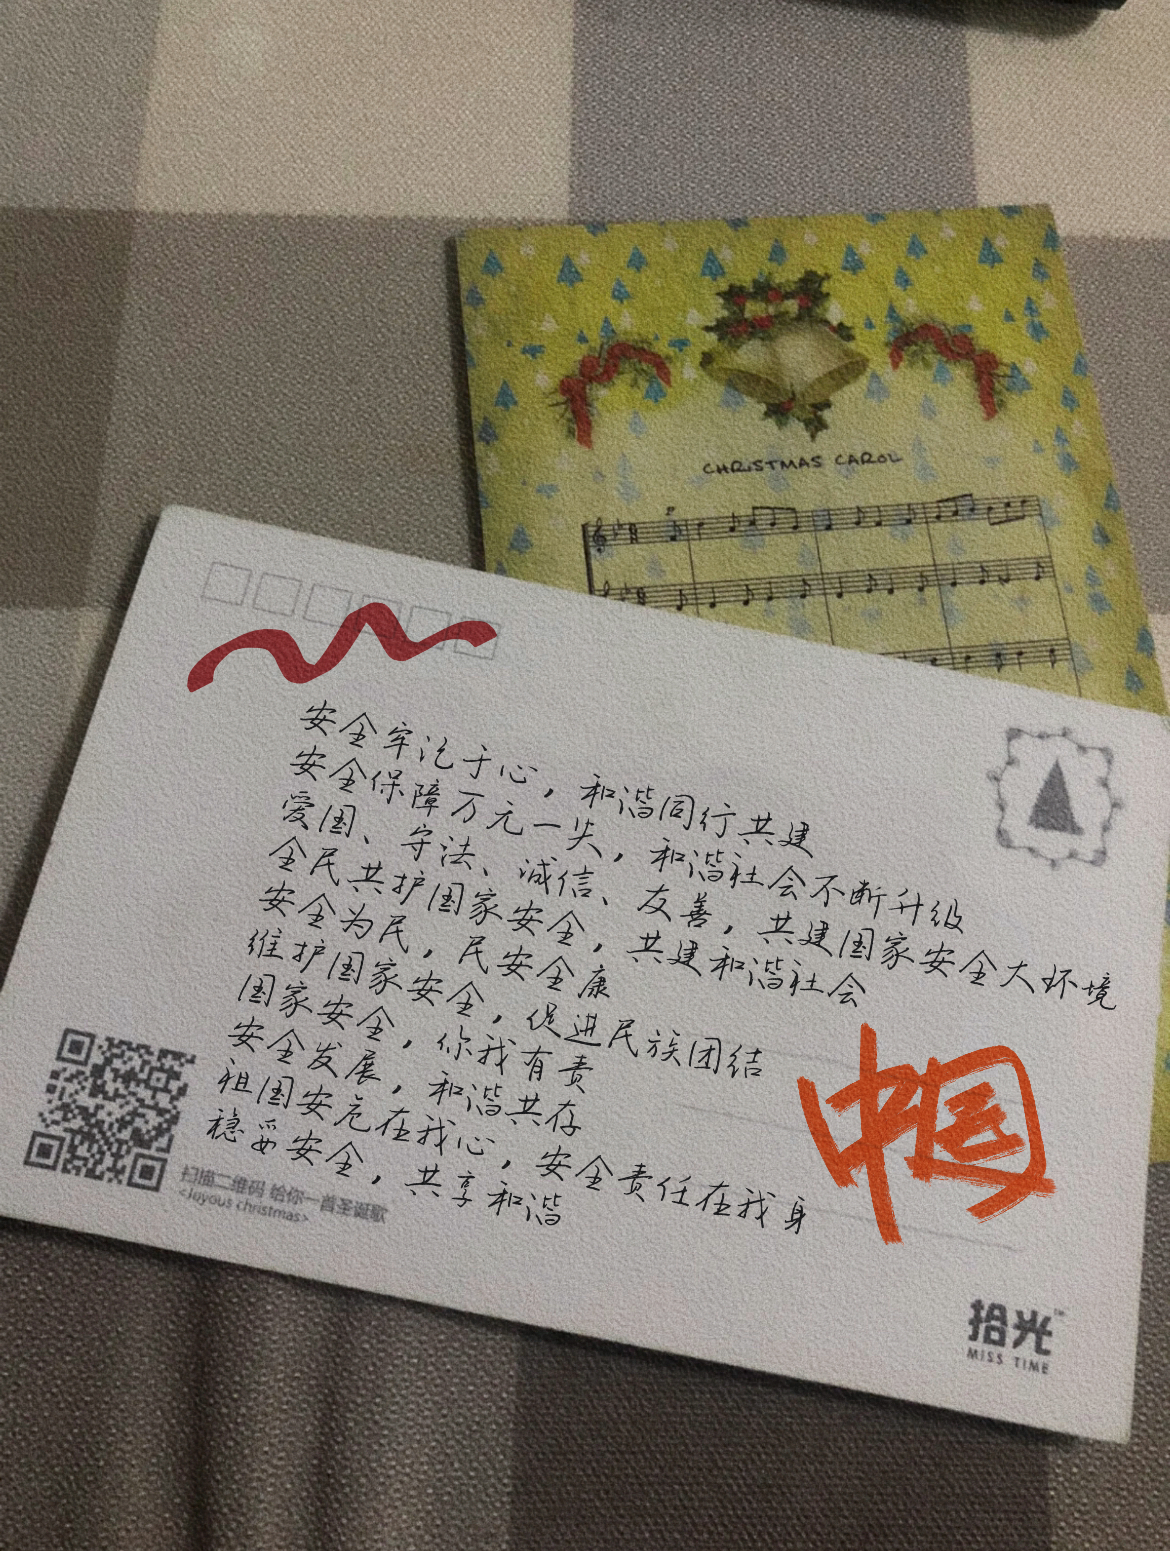 CHRISTMAS CAROL
安全牢记于心，和谐同行共建
安全保障万无一失，和谐社会不断升级
爱国、守法、诚信、友善，共建国家安全大环境
全民共护国家安全，共建和谐社会
安全为民，民安全康
维护国家安全，促进民族团结
国家安全，你我有责
安全发展，和谐共存
祖国安危在我心，安全责任在我身
稳妥安全，共享和谐
中国
扫描二维码 给你一首圣诞歌
<Joyous christmas>
拾光™
MISS TIME